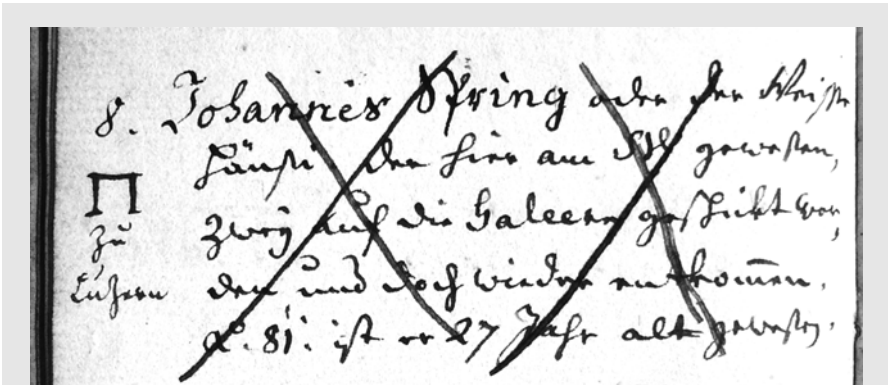 8. Johannes Spring oder der Weisse
Hänsi der hier am gewesen,
zwey auf die Galeere geschickt wor,
zu
den und doch wieder entkommen.
Luzern
81. ist er 27 Jahr alt gewesen.